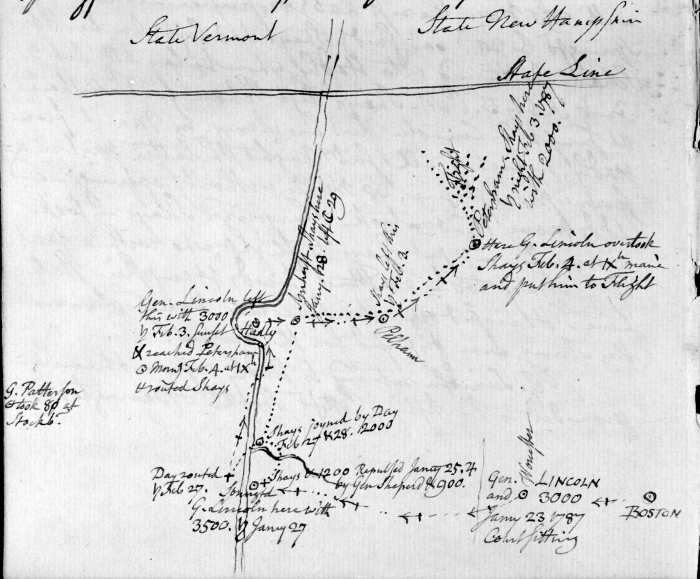 State Vermont
State New Hampshir
State Line
Flight
Petersham Shays here
y night Feb 3. 1787
with 2000.
Here G. Lincoln overtook
Shays Feb. 4. at IXth
and put him to Flight
Shays left this
y Feb. 2.
Pelham
Shays here
Jany. 28. left 29
Gen. Lincoln left
this with 3000
y Feb. 3. Sunset
Hadly
& reached Petersham
Morng Feb. 4. at IXth
& routed Shays
G. Patterson
took 80 at
Stockb.
Shays joyned by Day
Feb 27 & 28. 2000
Day routed
y Feb 27.
Shays & 1200 Repulsed Jancy 25. 4
by Gen Sheperd & 900.
G. Lincoln here with
3500. y Jancy 27
Gen. LINCOLN
and 3000
Jany 23 1787
Court sitting
BOSTON